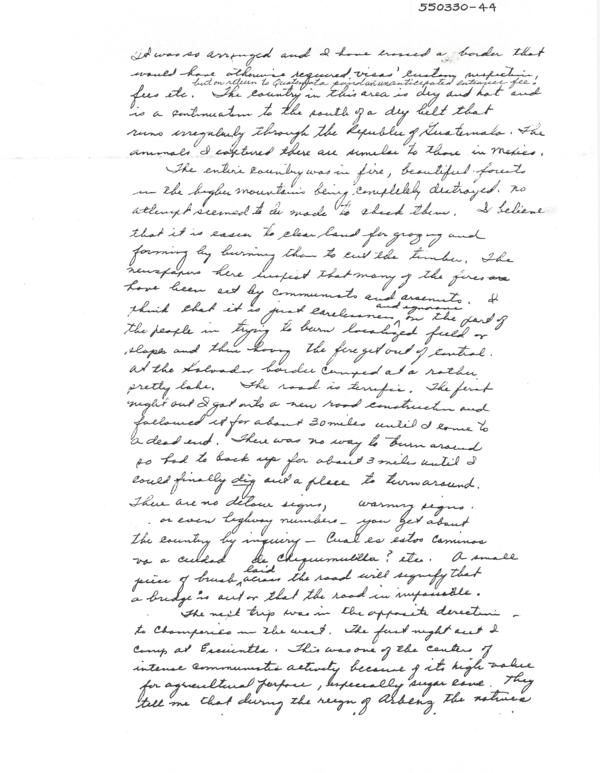 550330-44
It was so arranged and I have crossed a border that
would have otherwise required visas' custom inspection,
but on return to Guatemala paid an unanticipated entrance fee.
fees etc. The country in this area is dry and hot and
is a continuation to the south of a dry belt that
runs irregularly through the Republic of Guatemala. The
animals I captured there are similar to those in Mexico.
The entire country was in fire, beautiful forests
in the higher mountains being completely destroyed. no
attempt seemed to be made to check them. I believe
that it is easier to clear land for grazing and
farming by burning than to cut the timber. The
newspapers here suspect that many of the fires are
have been set by communists and arsonists. I
think that it is just carelessness and ignorance on the part of
the people in trying to burn localized field or
slopes and then having the fire get out of control.
At the Salvador border camped at a rather
pretty lake. The road is terrific. The first
night out I got onto a new road construction and
followed it for about 30 miles until I come to
a dead end. There was no way to turn around
so had to back up for about 3 miles until I
could finally dig out a place to turn around.
There are no detour signs, warning signs.
or even highway numbers - you get about
the country by inquiry - Cual es estos caminos
va a cuidad de Chiquimulilla? etc. A small
piece of brush laid across the road will signify that
a bridge is out or that the road is impassible.
The next trip was in the opposite direction -
to Champerico in the west. The first night out I
camp at Escuintla. This was one of the centers of
intense communistic activity because of its high value
for agricultural purpose, especially sugar cane. They
tell me that during the reign of Arbenz the natives